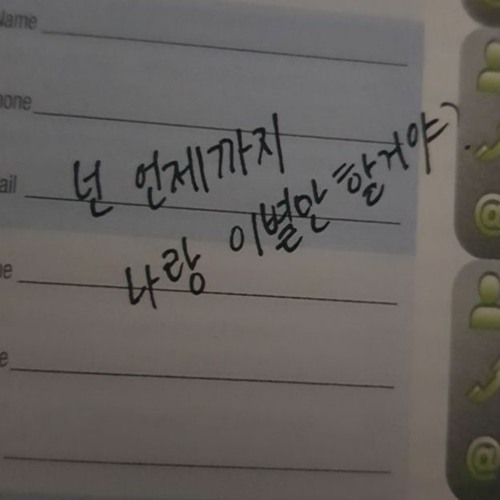 Name
hone
ail
넌 언제까지
나랑 이별만 할거야?
e
e